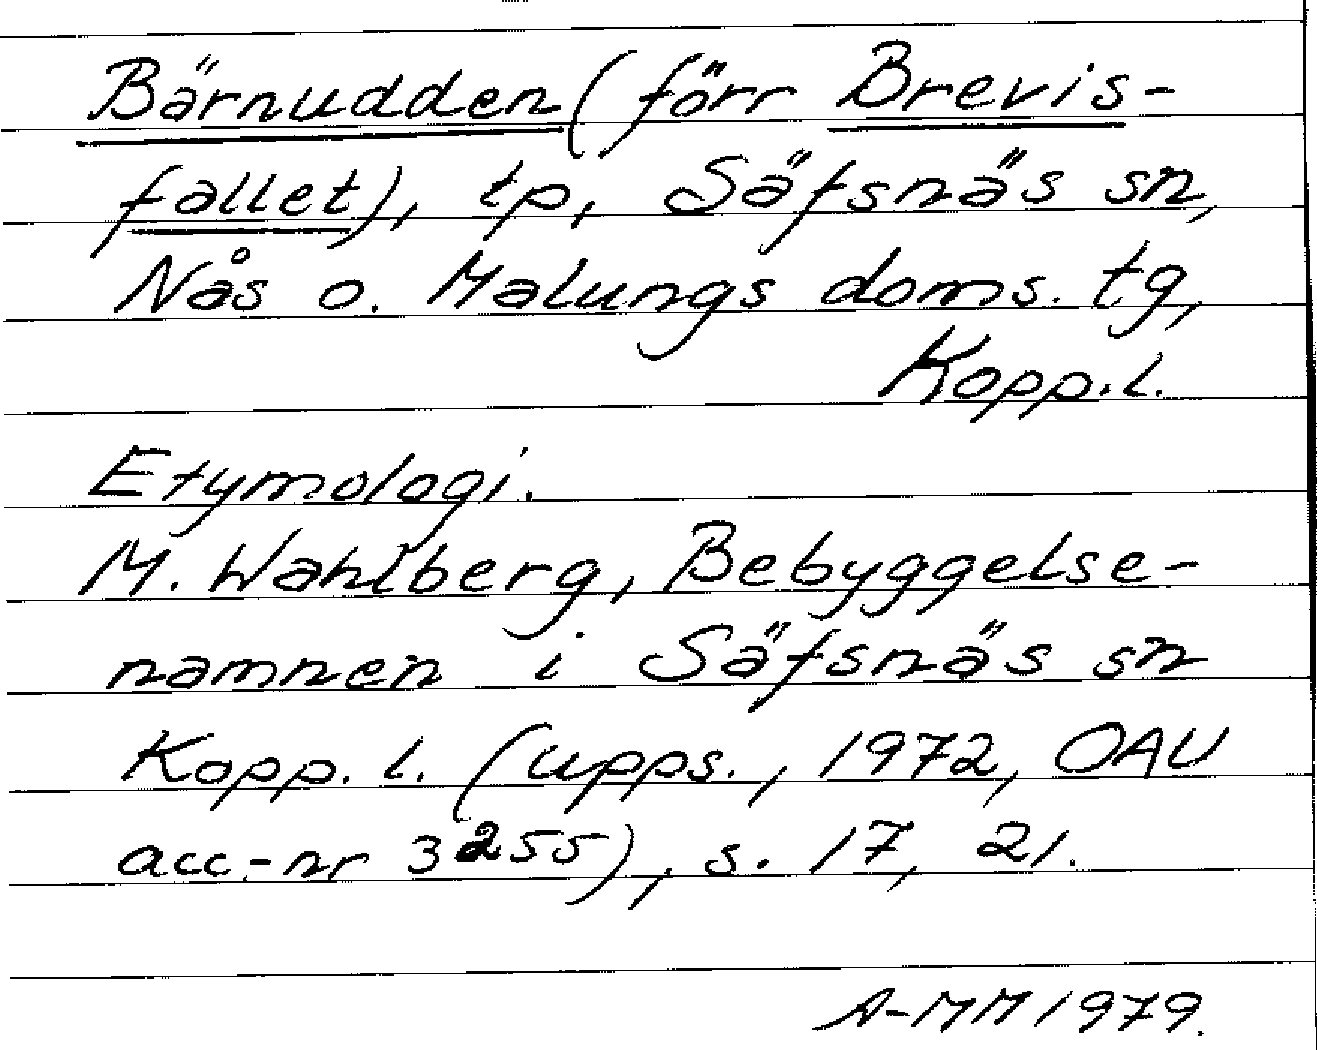 Bärnudden (förr Brevis-
fallet), tp, Säfsnäs sn,
Nås o. Malungs doms. tg,
Kopp.l.
Etymologi.
M. Wahlberg, Bebyggelse-
namnen i Säfsnäs sn
Kopp. l. (upps., 1972, OAU
acc.-nr 3255), s. 17, 21.
A-MM 1979.